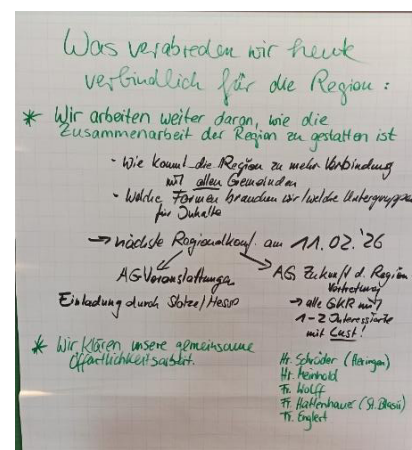 Was verabreden wir heute
verbindlich für die Region :
* Wir arbeiten weiter daran, wie die
Zusammenarbeit der Region zu gestalten ist
- Wie kommt die Region zu mehr Verbindung
mit allen Gemeinden
- Welche Formen brauchen wir/welche Untergruppen
für Inhalte
→ nächste Regionalkonf. am 11.02.'26
AG Veranstaltungen
Einladung durch
AG Zukunft d. Region
Vertretung
→ alle GKR mit
1-2 Interessierte
mit Lust!
* Wir klären unsere gemeinsame
Öffentlichkeitsarbeit.
Hr. Schröder (Heringen)
Hr. Meinhold
Fr. Wolff
Fr. Hattenhauer (St. Blasii)
Fr. Englert